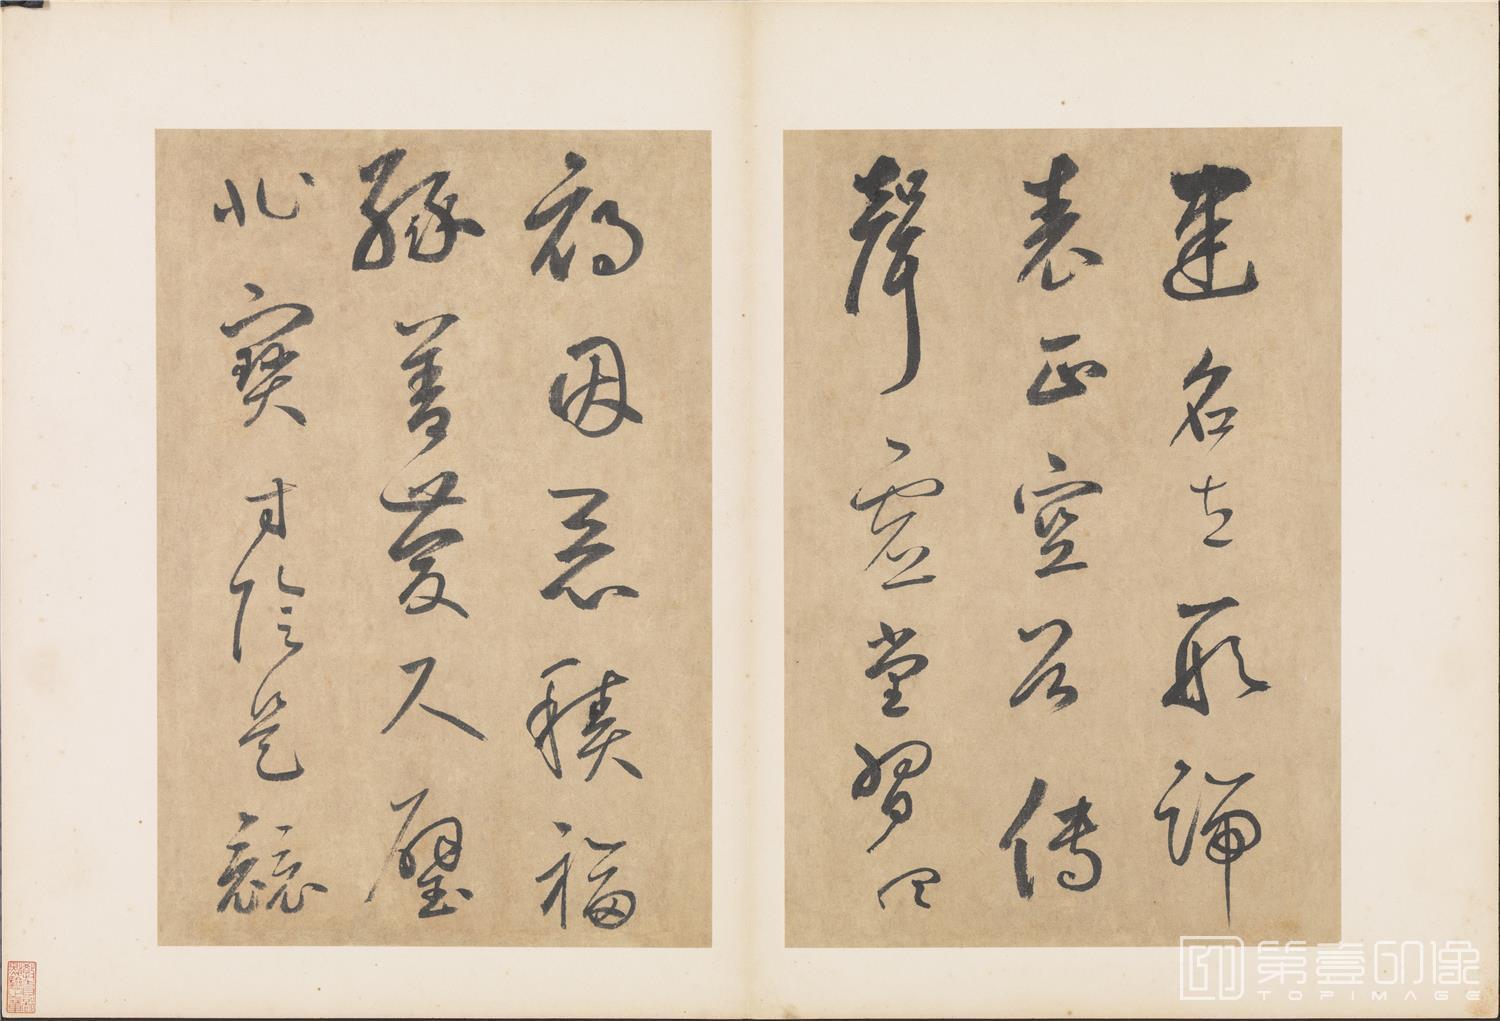 建名立形端
表正空谷傳
聲虛堂習聽
禍因惡積福
緣善慶尺璧
非寶寸陰是
競
第壹印像
TOPIMAGE